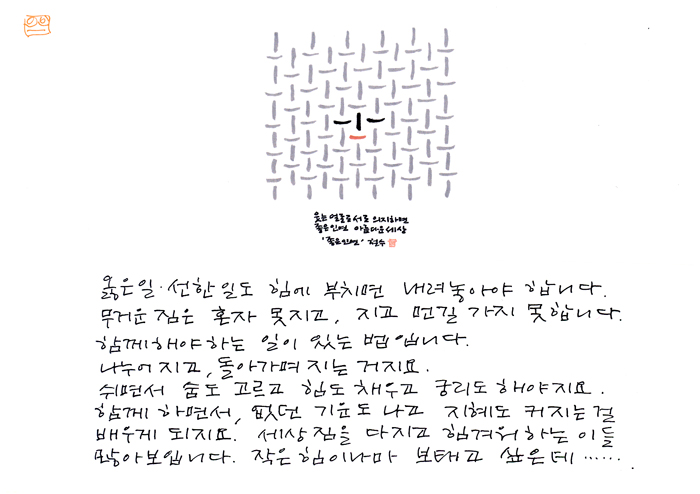 웃는 얼굴로 서로 의지하면
좋은 인연 아름다운 세상
'좋은 인연' 철수
옳은 일·선한 일도 힘에 부치면 내려놓아야 합니다.
무거운 짐은 혼자 못지고, 지고 먼길 가지 못합니다.
함께해야 하는 일이 있는 법입니다.
나누어 지고, 돌아가며 지는 거지요.
쉬면서 숨도 고르고 힘도 채우고 궁리도 해야지요.
함께 하면서, 없던 기운도 나고 지혜도 커지는 걸
배우게 되지요. 세상 짐을 다 지고 힘겨워 하는 이들
많아보입니다. 작은 힘이나마 보태고 싶은데……